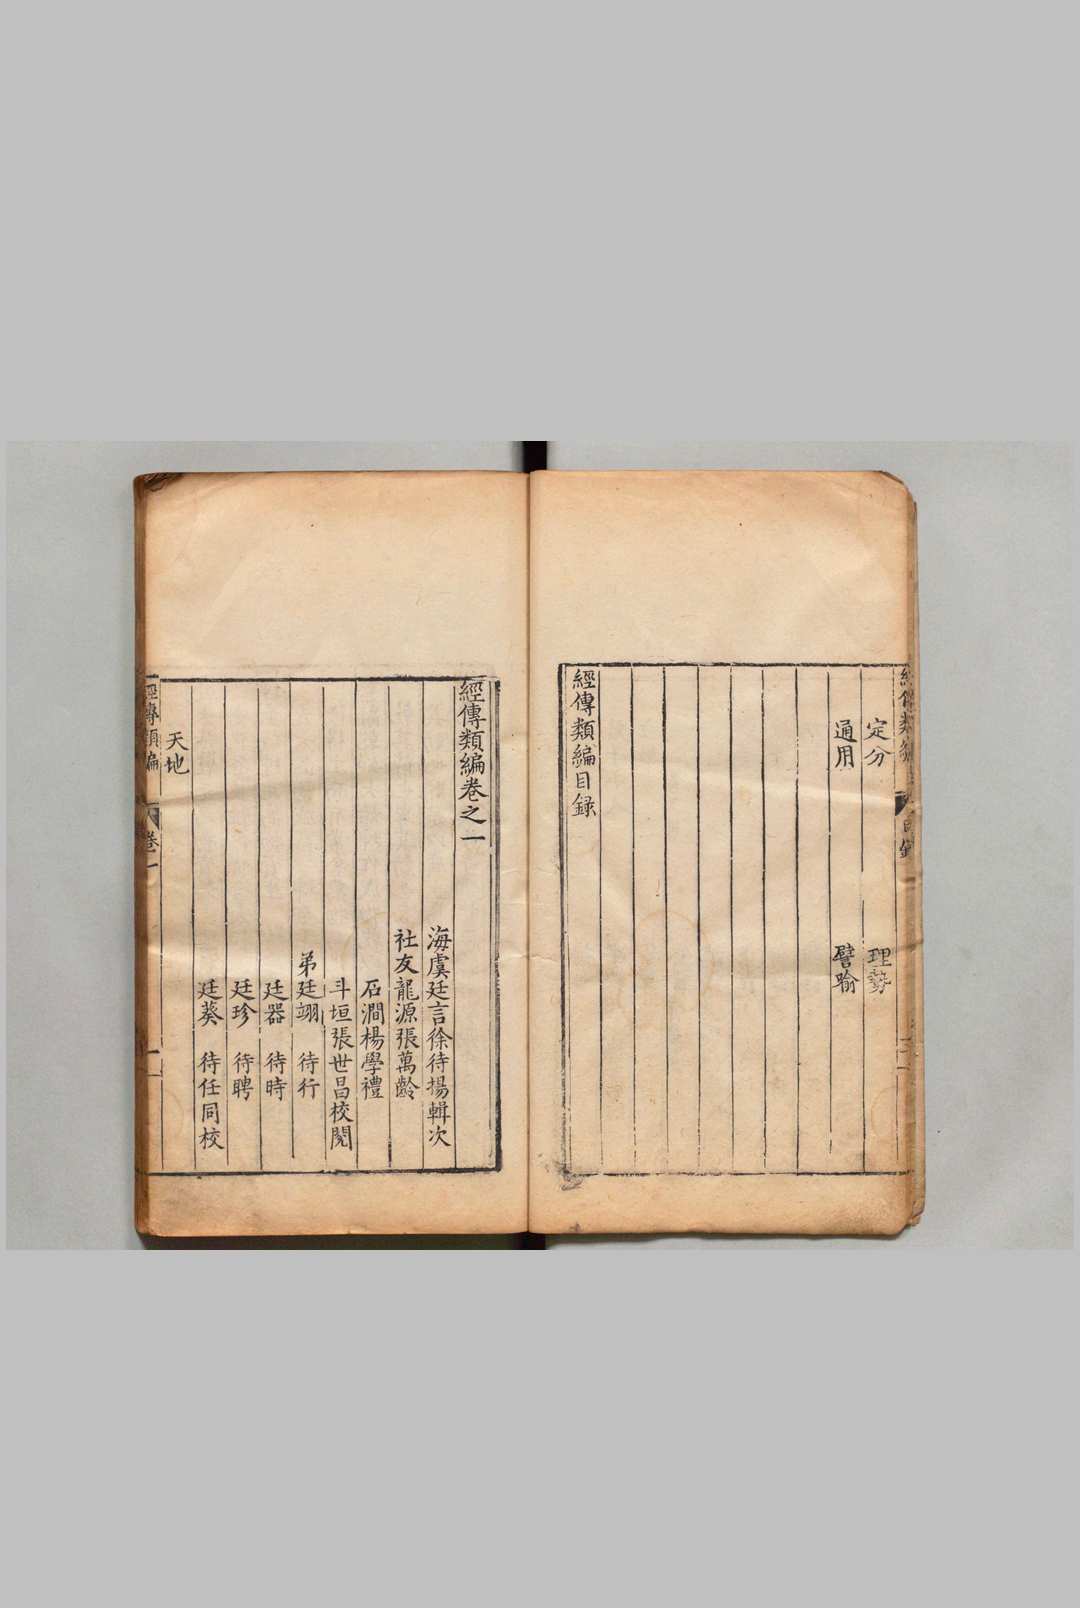 經傳類編 目錄
定分 理勢
通用 譬喻
經傳類編目録
經傳類編卷之一
海虞廷言徐待揚輯次
社友龍源張萬齡
石澗楊學禮
斗垣張世昌校閱
弟廷翊 待行
廷器 待時
廷珍 待聘
廷葵 待任同校
天地
經傳類編 卷一 一